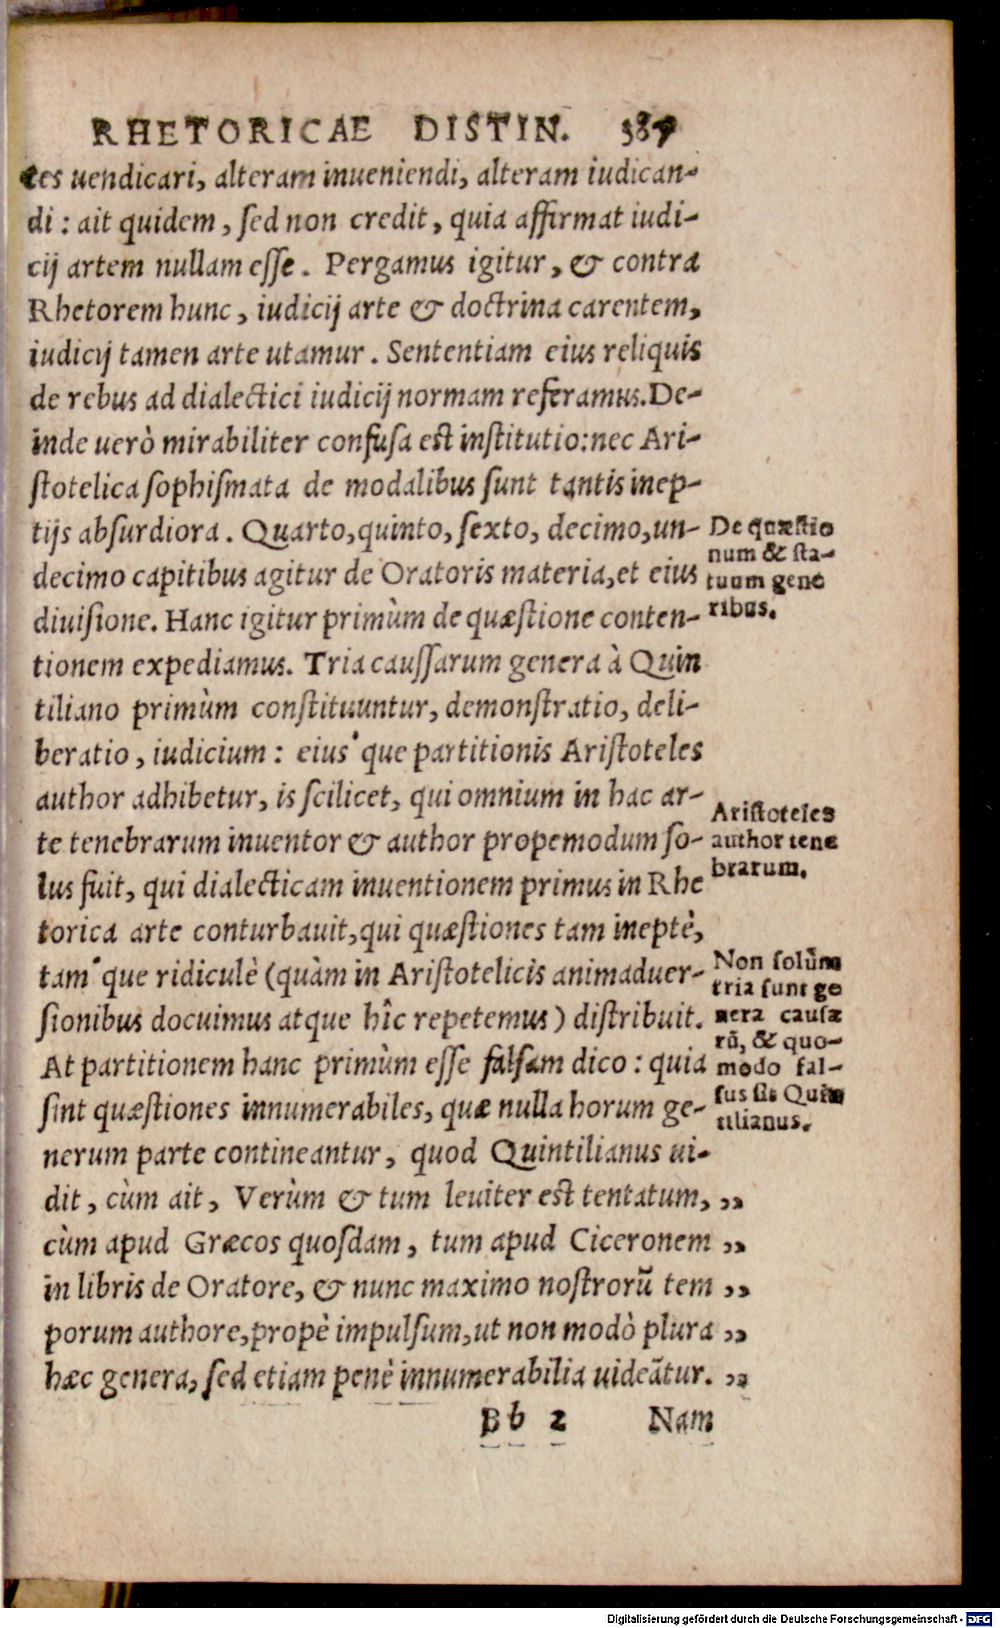 RHETORICAE DISTIN. 387
tes uendicari, alteram inueniendi, alteram iudican-
di : ait quidem, ſed non credit, quia affirmat iudi-
cij artem nullam eſſe. Pergamus igitur, & contra
Rhetorem hunc, iudicij arte & doctrina carentem,
iudicij tamen arte utamur. Sententiam eius reliquis
de rebus ad dialectici iudicij normam referamus. De-
inde uerò mirabiliter confuſa eſt inſtitutio: nec Ari-
ſtotelica ſophiſmata de modalibus ſunt tantis inep-
tijs abſurdiora. Quarto, quinto, ſexto, decimo, un-
decimo capitibus agitur de Oratoris materia, et eius
diuiſione. Hanc igitur primùm de quæſtione conten-
tionem expediamus. Tria cauſſarum genera à Quin
tiliano primùm conſtituuntur, demonſtratio, deli-
beratio, iudicium : eius'que partitionis Ariſtoteles
author adhibetur, is ſcilicet, qui omnium in hac ar-
te tenebrarum inuentor & author propemodum ſo-
lus fuit, qui dialecticam inuentionem primus in Rhe
torica arte conturbauit, qui quæſtiones tam ineptè,
tam'que ridiculè (quàm in Ariſtotelicis animaduer-
ſionibus docuimus atque hîc repetemus) diſtribuit.
At partitionem hanc primùm eſſe falſam dico : quia
ſint quæſtiones innumerabiles, quæ nulla horum ge-
nerum parte contineantur, quod Quintilianus ui-
dit, cùm ait, Verùm & tum leuiter eſt tentatum, ,,
cùm apud Græcos quoſdam, tum apud Ciceronem ,,
in libris de Oratore, & nunc maximo noſtrorũ tem ,,
porum authore, propè impulſum, ut non modò plura ,,
hæc genera, ſed etiam penè innumerabilia uideãtur. ,,
Bb 2 Nam
De quæſtio
num & ſta-
tuum gene
ribus.
Ariſtoteles
author tene
brarum.
Non ſolũm
tria ſunt ge
nera cauſa
rũ, & quo-
modo fal-
ſus ſit Quin
tilianus.
Digitalisierung gefördert durch die Deutsche Forschungsgemeinschaft - DFG